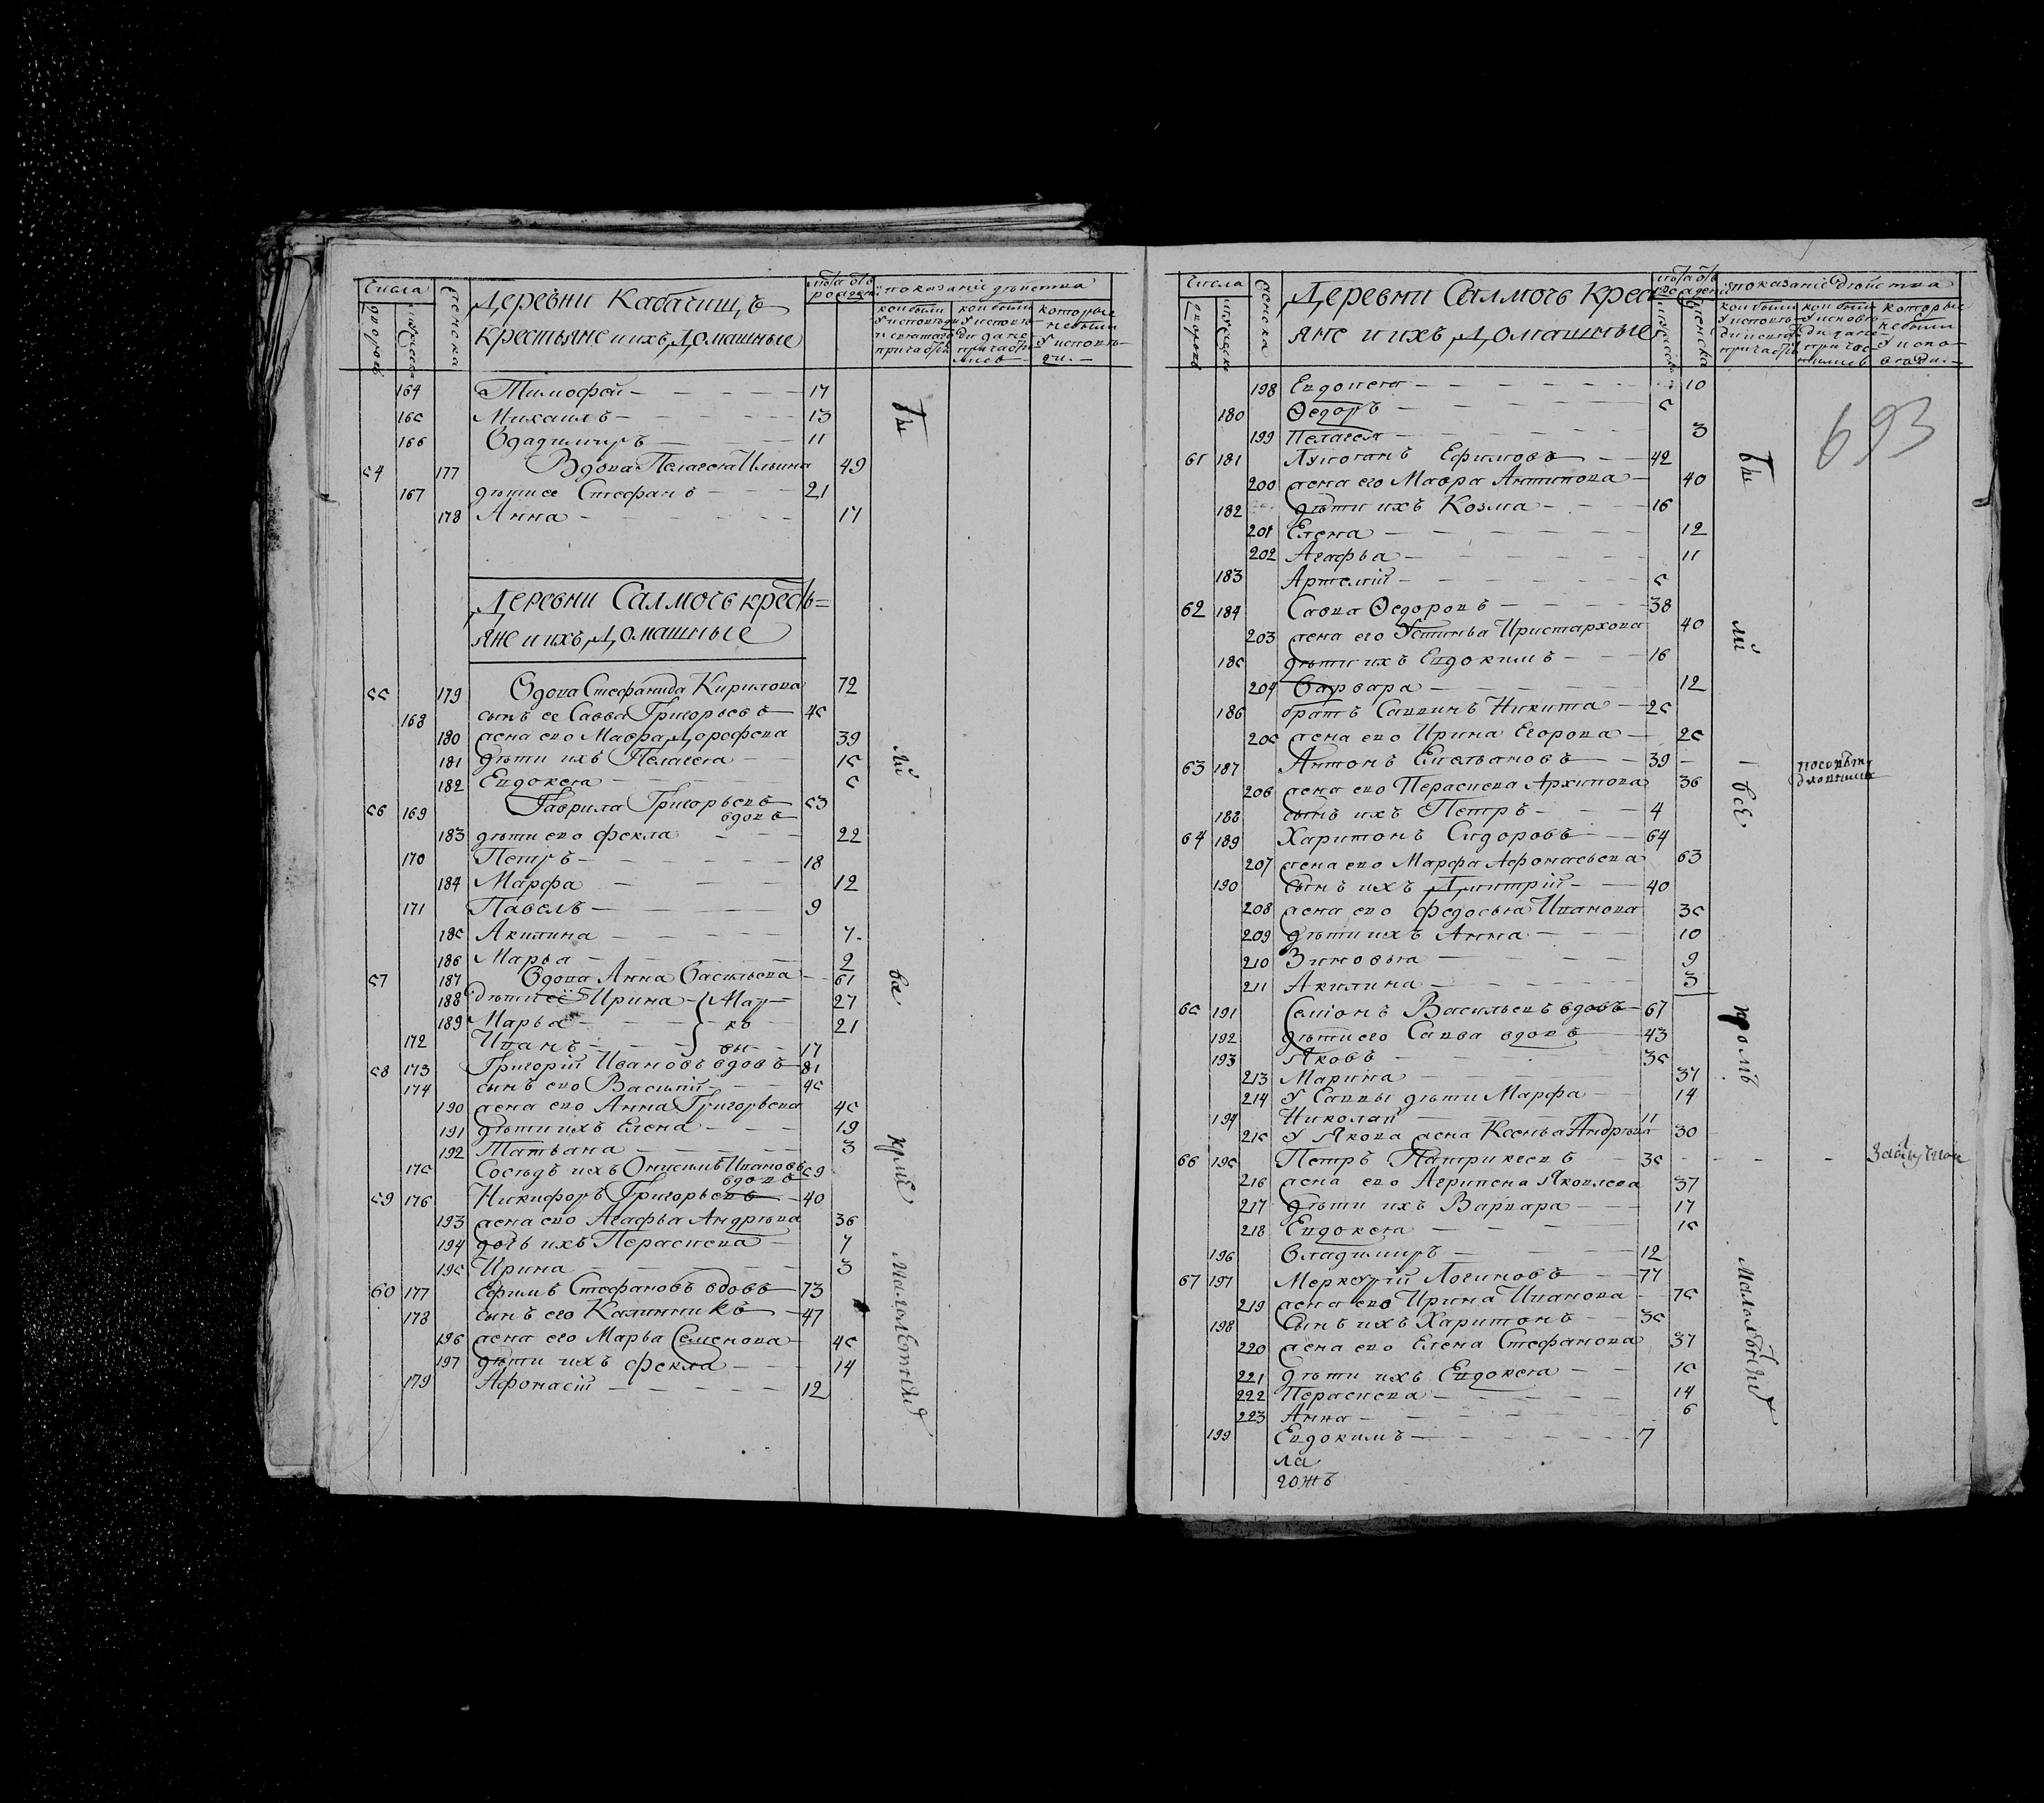 Числа
дворовъ
мужеска
женска
Деревни Кабачищъ
крестьяне и ихъ домашные
лѣта отъ
рожден
показаніе дѣйства
кои были
у исповѣди
и святаго
причастія
кои были
у исповѣ-
ди да не
причасти-
лись
которые
небыли
у исповѣ-
ди
164 Тимофей 17
165 Михаилъ 13
166 Владимиръ 11
54 177 Вдова Пелагея Ильина 49
167 дѣти ее Стефанъ 21
178 Анна 17
Деревни Салмочь кресть=
яне и ихъ домашные
55 179 Вдова Стефанида Кирилова 72
168 сынъ ее Савва Григорьевъ 45
180 жена ево Мавра Дорофева 39
181 дѣти ихъ Пелагея 15
182 Евдокея 5
56 169 Гаврила Григорьевъ 53
вдовъ
183 дѣти ево Фекла 22
170 Петръ 18
184 Марфа 12
171 Павелъ 9
185 Акилина 7
186 Марья 2
57 187 Вдова Анна Васильева 61
188 дѣти её Ирина 27
189 Марья 21
172 Иванъ 17
58 173 Григорій Ивановъ вдовъ 81
174 сынъ ево Василій 45
190 жена ево Анна Григорьева 45
191 дѣти ихъ Елена 19
192 Татьана 3
175 Сосѣдъ ихъ Онисимъ Ивановъ 59
вдовъ
59 176 Никифоръ Григорьевъ 40
193 жена ево Агафья Андрѣева 36
194 дочь ихъ Пераскева 7
195 Ирина 3
60 177 Ефимъ Стефановъ вдовъ 73
178 сынъ его Калинникъ 47
196 жена его Марья Семенова 45
197 дѣти ихъ Фекла 14
179 Афонасій 12
Бы
ли
всѣ
кромѣ
малолетныхъ
Числа
дворовъ
мужеска
женска
Деревни Салмочь крест
яне и ихъ домашные
лѣта отъ
рожденія
мужеска
женска
показаніе дѣйства
кои были
у исповѣ-
ди и свята
причастія
кои были
у исповѣ-
ди да не
причас-
тились
которые
небыли
у испо-
вѣди
693
198 Евдокея 10
180 Ѳедоръ 5
199 Пелагея 3
61 181 Ефимовъ 42
200 жена его Мавра Антипова 40
182 дѣти ихъ Козма 16
201 Елена 12
202 Агафья 11
183 Артемій 5
62 184 Савва Ѳедоровъ 38
203 жена его Устинья Иристархова 40
185 дѣти ихъ Евдокимъ 16
204 Варвара 12
186 братъ Саввинъ Никита 25
205 жена ево Ирина Егорова 25
63 187 Антонъ Емельановъ 39
206 жена ево Пераскева Архипова 36
188 сынъ ихъ Петръ 4
64 189 Харитонъ Сидоровъ 64
207 жена ево Марфа Афонасьева 63
190 сынъ ихъ Дмитрій 40
208 жена ево Федосья Иванова 35
209 дѣти ихъ Анна 10
210 Зиновья 9
211 Акилина 3
65 191 Семіонъ Васильевъ вдовъ 67
192 дѣти его Савва вдовъ 43
193 Яковъ 35
213 Марина 37
214 У Саввы дѣти Марфа 14
194 Николай 11
215 У Якова жена Ксенья Андрѣева 30
66 195 Петръ Патрикеевъ 35
216 жена ево Агрипена Яковлева 37
217 дѣти ихъ Варвара 17
218 Евдокея 15
196 Владимиръ 12
67 197 Меркурій Логиновъ 77
219 жена ево Ирина Иванова 75
198 Сынъ ихъ Харитонъ 35
220 жена ево Елена Стефанова 37
221 дѣти ихъ Евдокея 15
222 Пераскева 14
223 Анна 6
199 Евдокимъ 7
Бы
ли
всѣ
кромѣ
малолѣтныхъ
ла
гожъ